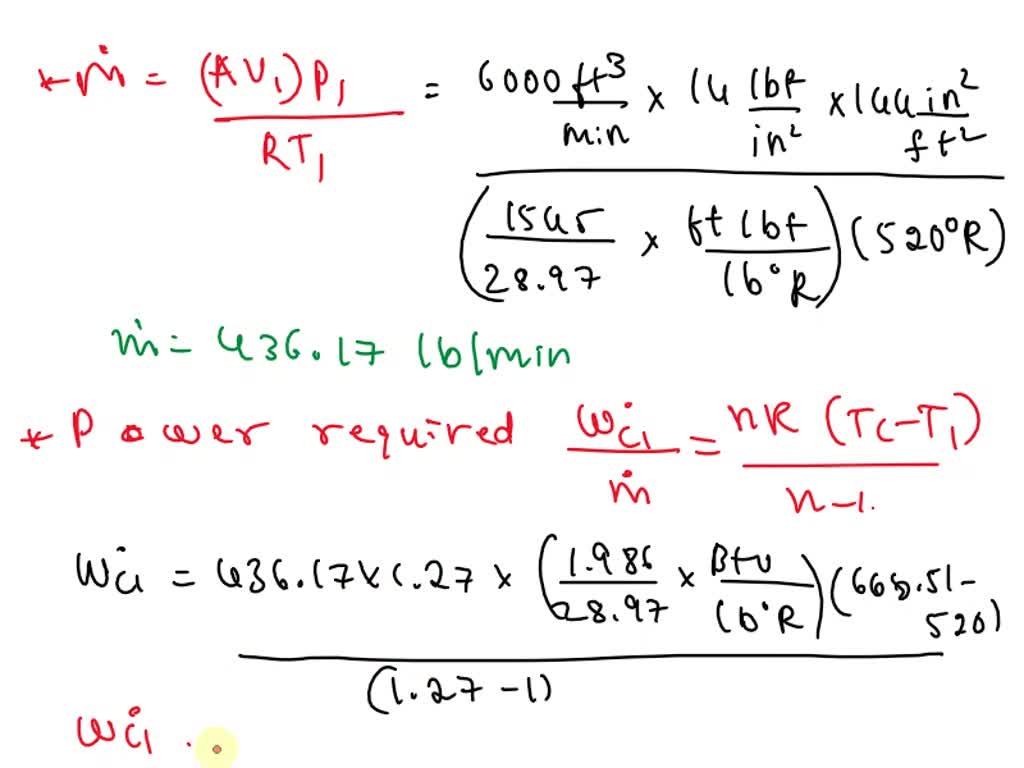 * ṁ = (AV₁)P₁ / RT₁ = 6000 ft³/min × 14 lbf/in² × 144 in²/ft² / (1545/28.97 × ft lbf/lb°R)(520°R)
ṁ = 436.17 lb/min
* Power required Ẇc₁/ṁ = nR (Tc-T₁) / n-1.
Ẇc₁ = 436.17 × 1.27 × (1.986/28.97 × Btu/lb°R)(
520) / (1.27-1)
Ẇc₁ .